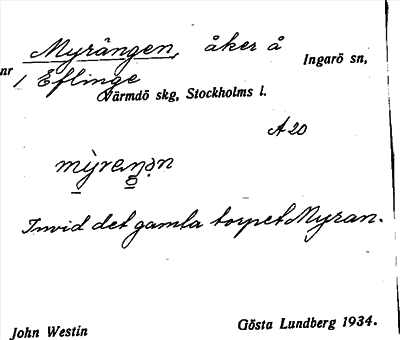 Myrängen, åker å Ingarö sn,
nr 1 Eflinge
Värmdö skg, Stockholms l.
A 20
Invid det gamla torpet Myran.
John Westin Gösta Lundberg 1934.